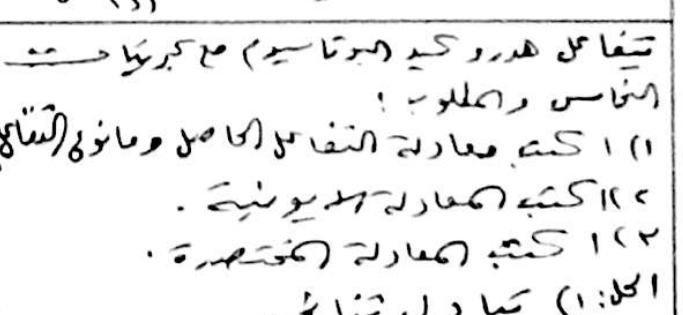 يتفاعل هدروكسيد البوتاسيوم مع كبريتات
النحاس والمطلوب:
١) اكتب معادلة التفاعل الحاصل وما نوع التفاعل
٢) اكتب المعادلة الايونية.
٣) اكتب المعادلة المختصرة.
الحل: ١) تبادل ثنائي